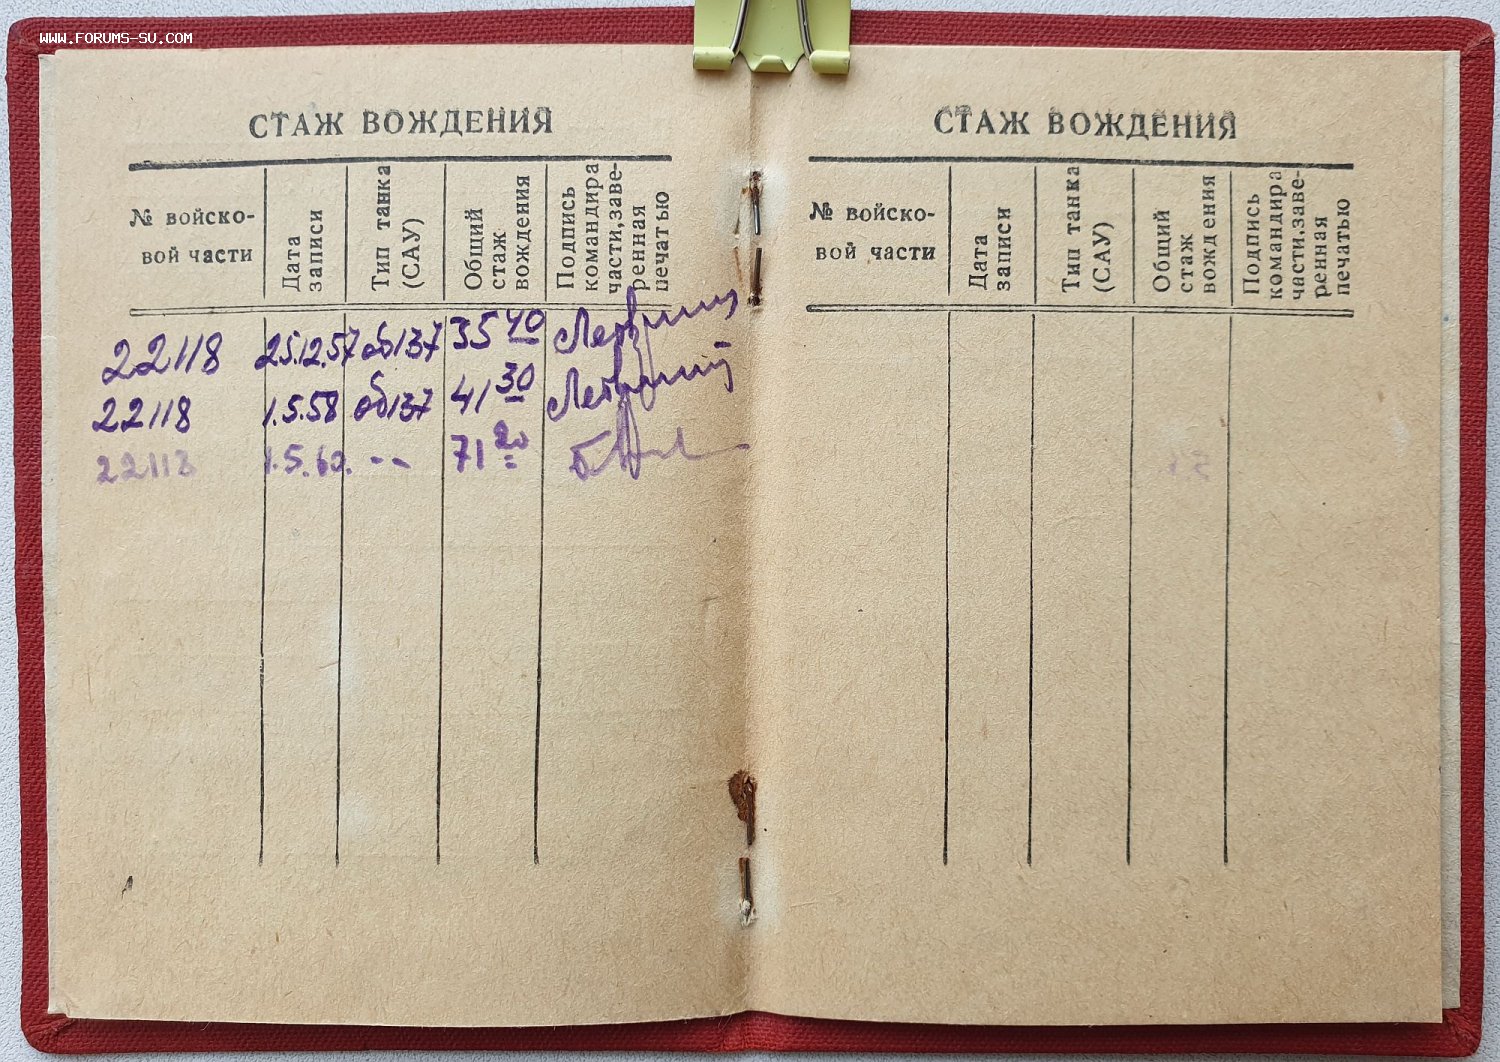 WWW.FORUMS-SU.COM
СТАЖ ВОЖДЕНИЯ
№ войско-
вой части
Дата
записи
Тип танка
(САУ)
Общий
стаж
вождения
Подпись
командира
части,заве-
ренная
печатью
22118 25.12.57 об137 35 40
22118 1.5.58 об137 41 30
22118 1.5.60. -- 71 20
СТАЖ ВОЖДЕНИЯ
№ войско-
вой части
Дата
записи
Тип танка
(САУ)
Общий
стаж
вождения
Подпись
командира
части,заве-
ренная
печатью